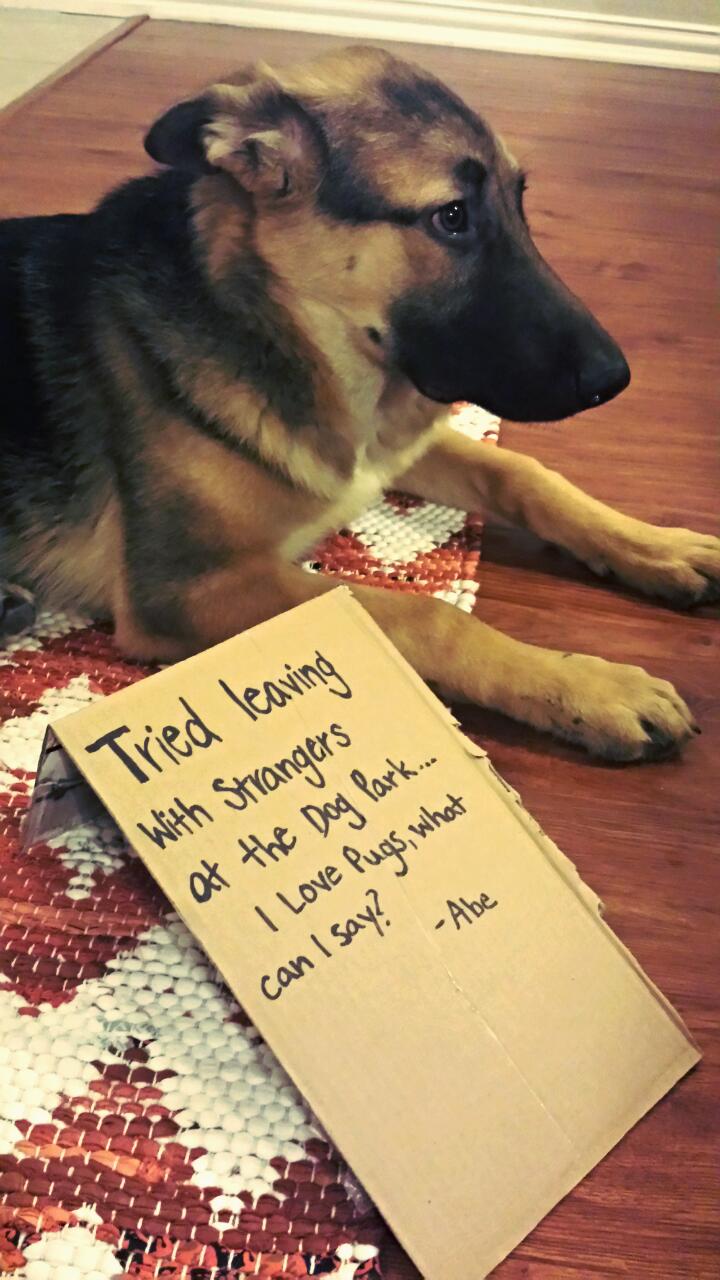 Tried leaving
With Strangers
at the Dog Park...
I Love Pugs, what
can I say? -Abe